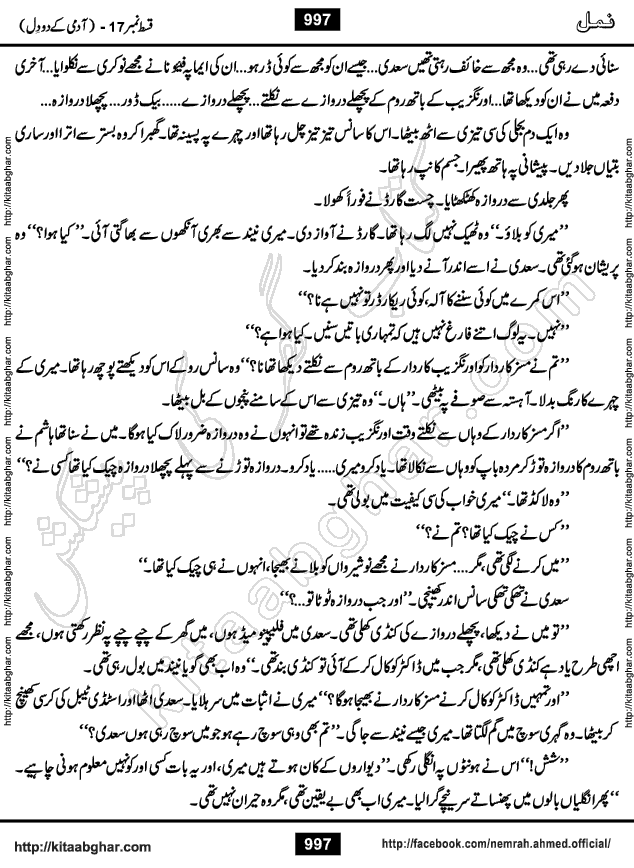 نمل 997 قسط نمبر 17 - (آدمی کے دو دل)
سنائی دے رہی تھی... وہ مجھ سے خائف رہتی تھیں سعدی... جیسے ان کو مجھ سے کوئی ڈر ہو... ان کی ایما پہ فیونا نے مجھے نوکری سے نکلوایا... آخری
دفعہ میں نے ان کو دیکھا تھا... اورنگزیب کے باتھ روم کے پچھلے دروازے سے نکلتے... پچھلے دروازے... بیک ڈور... پچھلا دروازہ...
وہ ایک دم بجلی کی سی تیزی سے اٹھ بیٹھا۔ اس کا سانس تیز تیز چل رہا تھا اور چہرے پہ پسینہ تھا۔ گھبرا کر وہ بستر سے اترا اور ساری
بتیاں جلا دیں۔ پیشانی پہ ہاتھ پھیرا۔ جسم کانپ رہا تھا۔
پھر جلدی سے دروازہ کھٹکھٹایا۔ چست گارڈ نے فوراً کھولا۔
”میری کو بلاؤ۔“ وہ ٹھیک نہیں لگ رہا تھا۔ گارڈ نے آواز دی۔ میری نیند سے بھری آنکھوں سے بھاگتی آئی۔ ”کیا ہوا؟“ وہ
پریشان ہوگئی تھی۔ سعدی نے اسے اندر آنے دیا اور پھر دروازہ بند کر دیا۔
”اس کمرے میں کوئی سننے کا آلہ، کوئی ریکارڈر تو نہیں ہے نا؟“
”نہیں۔ یہ لوگ اتنے فارغ نہیں ہیں کہ تمہاری باتیں سنیں۔ کیا ہوا ہے؟“
”تم نے مسز کاردار کو اورنگزیب کاردار کے باتھ روم سے نکلتے دیکھا تھا نا؟“ وہ سانس روکے اس کو دیکھتے پوچھ رہا تھا۔ میری کے
چہرے کا رنگ بدلا۔ آہستہ سے صوفے پہ بیٹھی۔ ”ہاں۔“ وہ تیزی سے اس کے سامنے پنجوں کے بل بیٹھا۔
”اگر مسز کاردار کے وہاں سے نکلتے وقت اورنگزیب زندہ تھے تو انہوں نے وہ دروازہ ضرور لاک کیا ہوگا۔ میں نے سنا تھا ہاشم نے
باتھ روم کا دروازہ توڑ کر مردہ باپ کو وہاں سے نکالا تھا۔ یاد کرو میری..... یاد کرو۔ دروازہ توڑنے سے پہلے پچھلا دروازہ چیک کیا تھا کسی نے؟“
”وہ لاکڈ تھا۔“ میری خواب کی سی کیفیت میں بولی تھی۔
”کس نے چیک کیا تھا؟ تم نے؟“
”میں کرنے لگی تھی، مگر.... مسز کاردار نے مجھے نوشیرواں کو بلانے بھیجا، انہوں نے ہی چیک کیا تھا۔“
سعدی نے تھکی تھکی سانس اندر کھینچی۔ ”اور جب دروازہ ٹوٹا تو...؟“
”تو میں نے دیکھا، پچھلے دروازے کی کنڈی کھلی تھی۔ سعدی میں فلپینو میڈ ہوں، میں گھر کے چپے چپے پہ نظر رکھتی ہوں، مجھے
اچھی طرح یاد ہے کنڈی کھلی تھی، مگر جب میں ڈاکٹر کو کال کر کے آئی تو کنڈی بند تھی۔“ وہ اب بھی گویا نیند میں بول رہی تھی۔
”اور تمہیں ڈاکٹر کو کال کرنے مسز کاردار نے بھیجا ہوگا؟“ میری نے اثبات میں سر ہلایا۔ سعدی اٹھا اور اسٹڈی ٹیبل کی کرسی کھینچ
کر بیٹھا۔ وہ گہری سوچ میں گم لگتا تھا۔ میری جیسے نیند سے جاگی۔ ”تم بھی وہی سوچ رہے ہو جو میں سوچ رہی ہوں سعدی؟“
”شش!“ اس نے ہونٹوں پہ انگلی رکھی۔ ”دیواروں کے کان ہوتے ہیں میری، اور یہ بات کسی اور کو نہیں معلوم ہونی چاہیے۔
“ پھر انگلیاں بالوں میں پھنساتے سر نیچے گرا لیا۔ میری اب بھی بے یقین تھی، مگر وہ حیران نہیں تھی۔
http://kitaabghar.com 997 http://facebook.com/nemrah.ahmed.official/
http://kitaabghar.com http://kitaabghar.com http://kitaabghar.com http://kitaabghar.com http://kitaabghar.com http://kitaabghar.com
http://kitaabghar.com http://kitaabghar.com http://kitaabghar.com http://kitaabghar.com http://kitaabghar.com http://kitaabghar.com
کتاب گھر کی پیشکش
kitaabghar.com